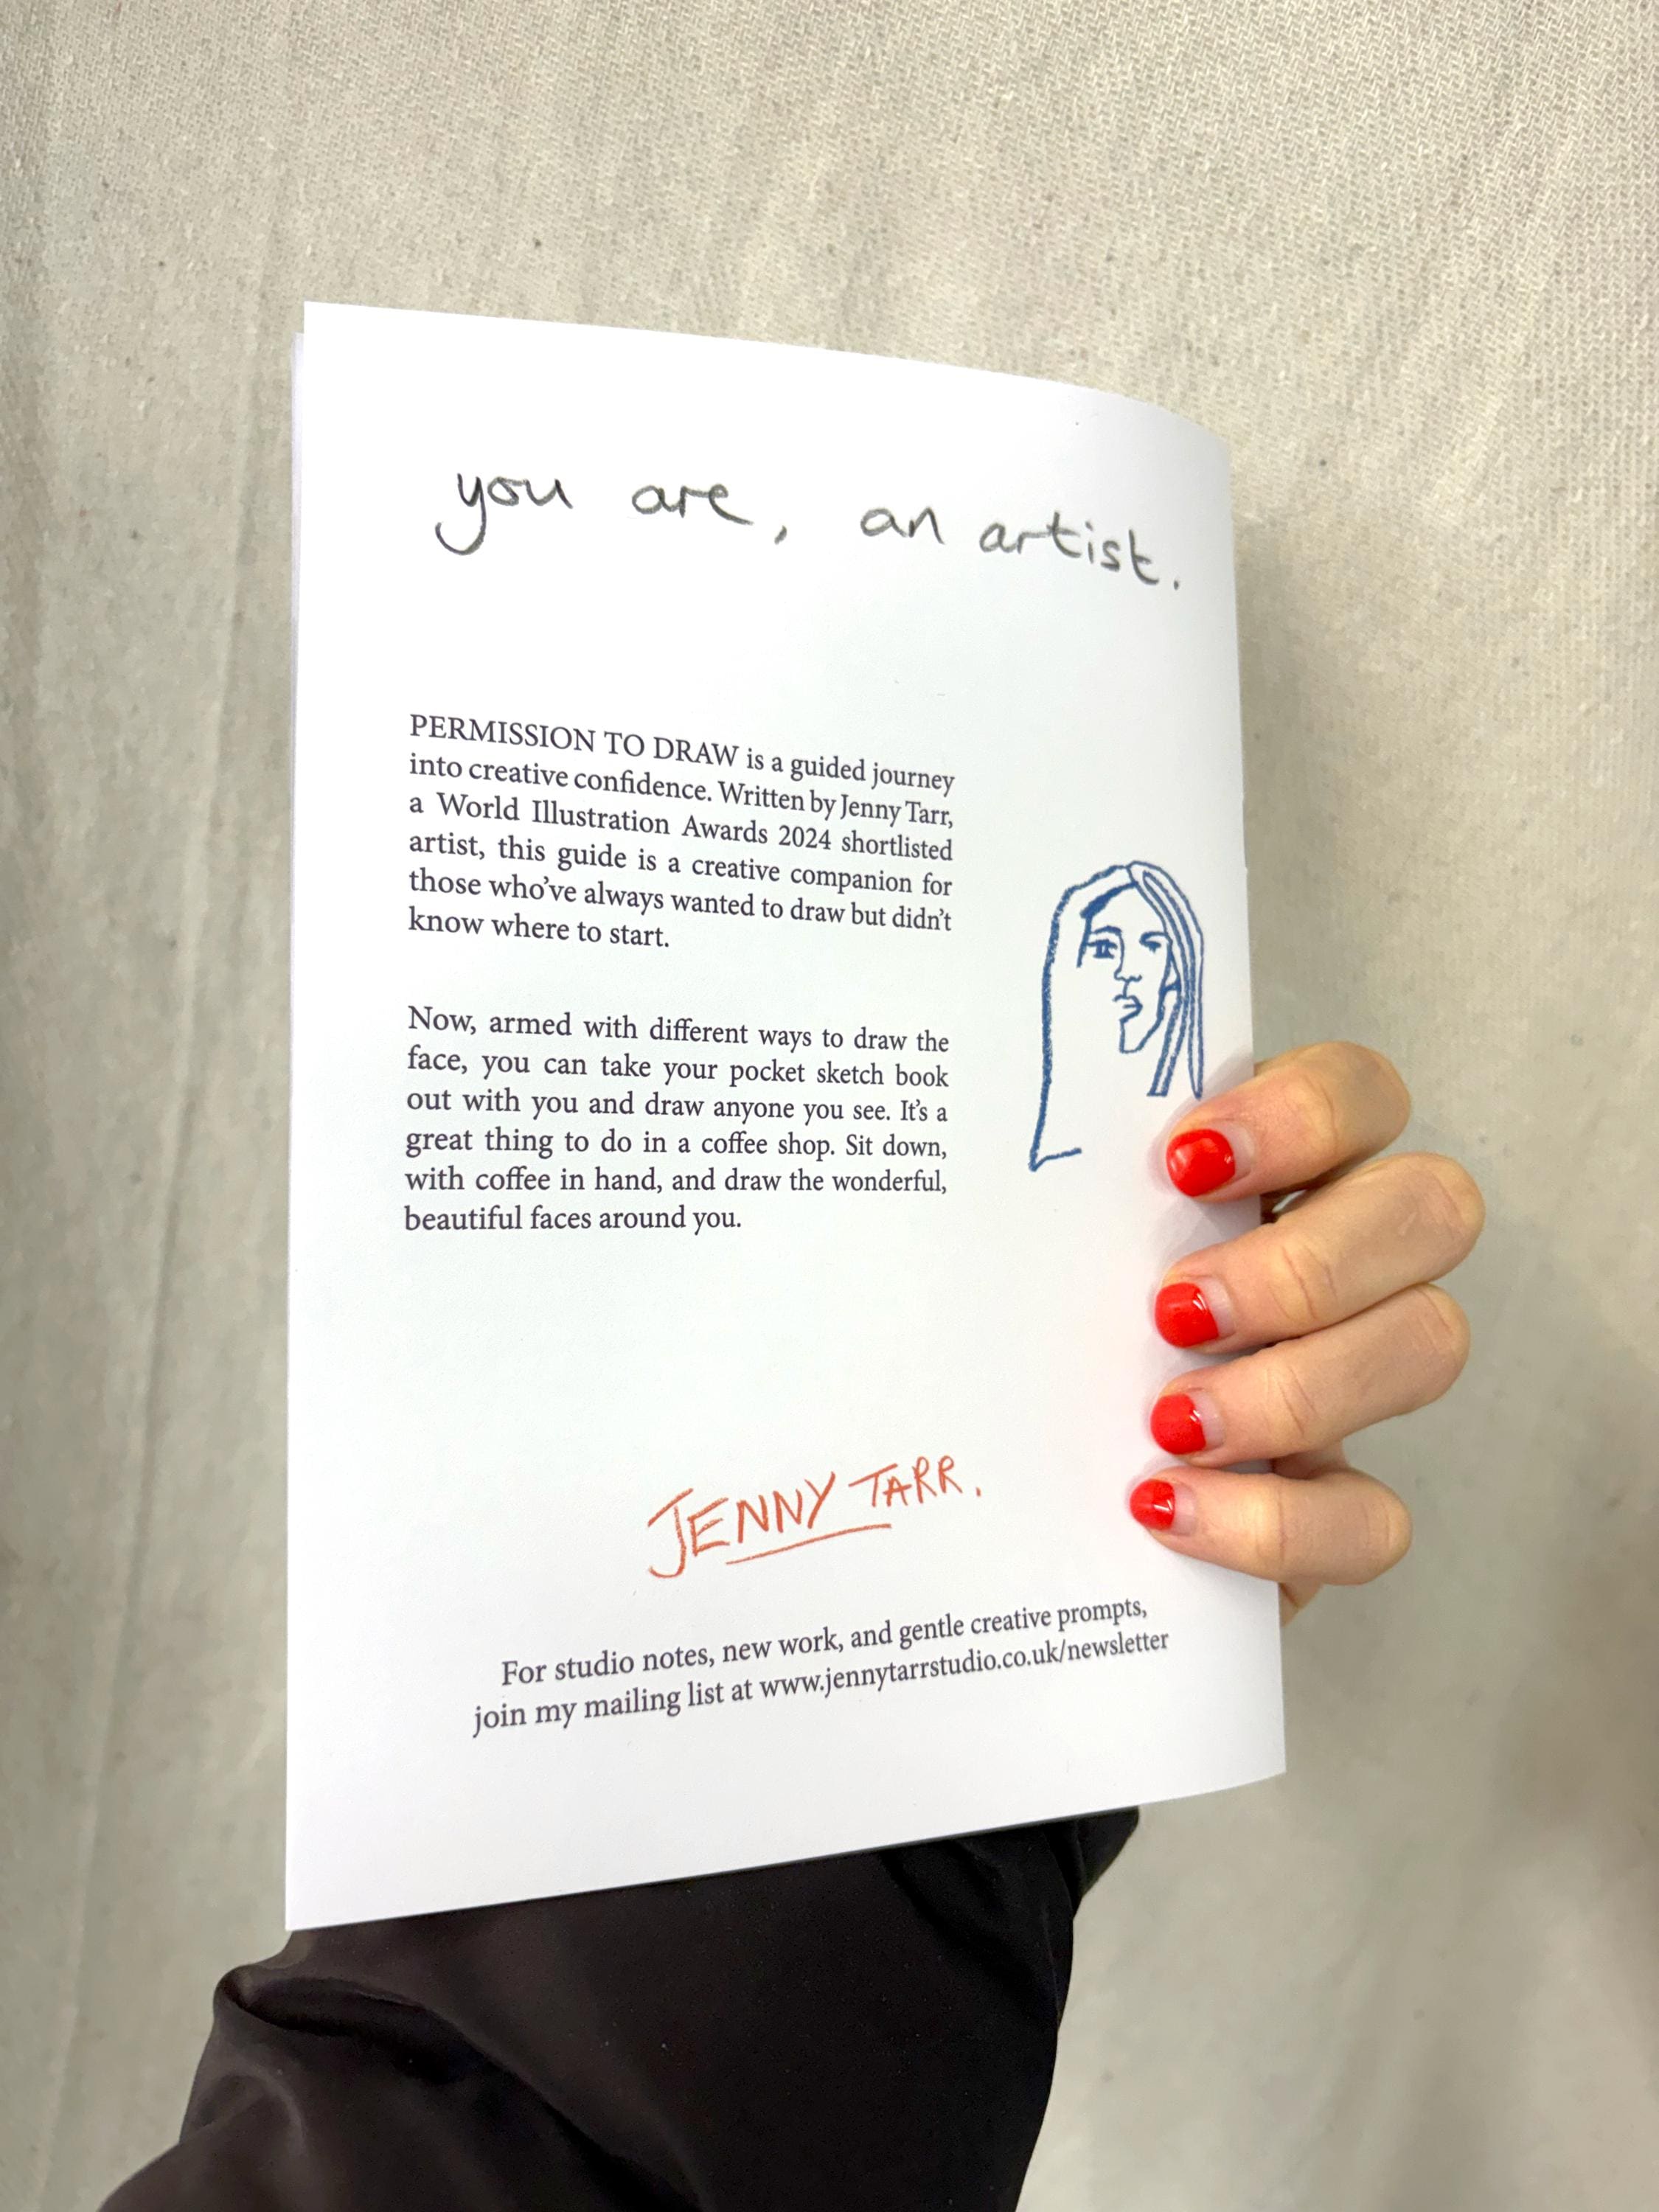 you are, an artist.
PERMISSION TO DRAW is a guided journey
into creative confidence. Written by Jenny Tarr,
a World Illustration Awards 2024 shortlisted
artist, this guide is a creative companion for
those who’ve always wanted to draw but didn’t
know where to start.
Now, armed with different ways to draw the
face, you can take your pocket sketch book
out with you and draw anyone you see. It’s a
great thing to do in a coffee shop. Sit down,
with coffee in hand, and draw the wonderful,
beautiful faces around you.
JENNY TARR.
For studio notes, new work, and gentle creative prompts,
join my mailing list at www.jennytarrstudio.co.uk/newsletter